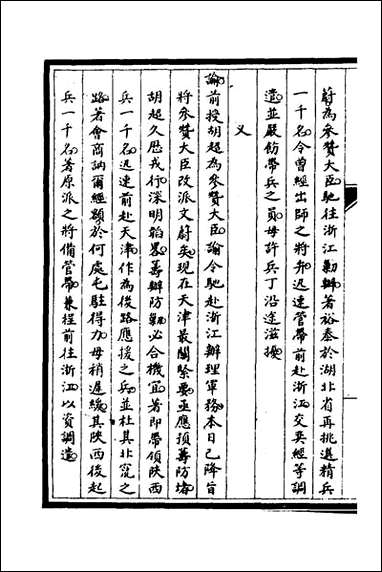 蔚為參贊大臣馳往浙江勦辦著裕泰於湖北省再挑選精兵
一千名令曾經出師之將弁迅速管帶前赴浙江交奕經等調
遣並嚴飭帶兵之員毋許兵丁沿途滋擾
又
諭前授胡超為參贊大臣諭令馳赴浙江辦理軍務本日已降旨
將參贊大臣改派文蔚矣現在天津最關緊要亟應預籌防堵
胡超久歷戎行深明韜畧籌辦防勦必合機宜著即帶領陝西
兵一千名迅速前赴天津作為後路應援之兵並杜其北竄之
路著會商訥爾經額於何處屯駐得力毋稍遲緩其陝西後起
兵一千名著原派之將備管帶兼程前往浙江以資調遣